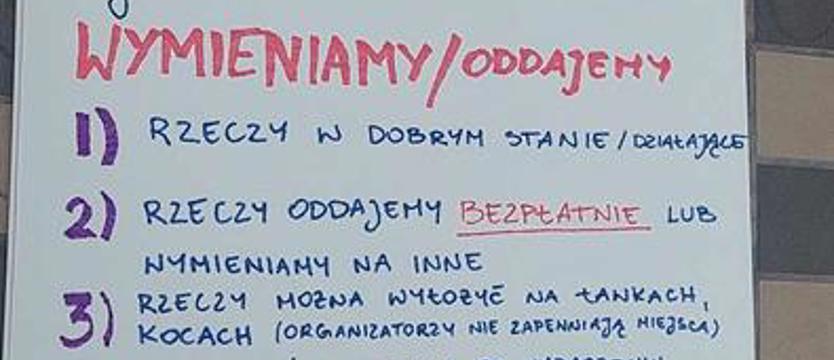 WYMIENIAMY/ODDAJEMY
1) RZECZY W DOBRYM STANIE/DZIAŁAJĄCE
2) RZECZY ODDAJEMY BEZPŁATNIE LUB
WYMIENIAMY NA INNE
3) RZECZY MOŻNA WYŁOŻYĆ NA ŁAWKACH,
KOCACH (ORGANIZATORZY NIE ZAPEWNIAJĄ MIEJSCA)